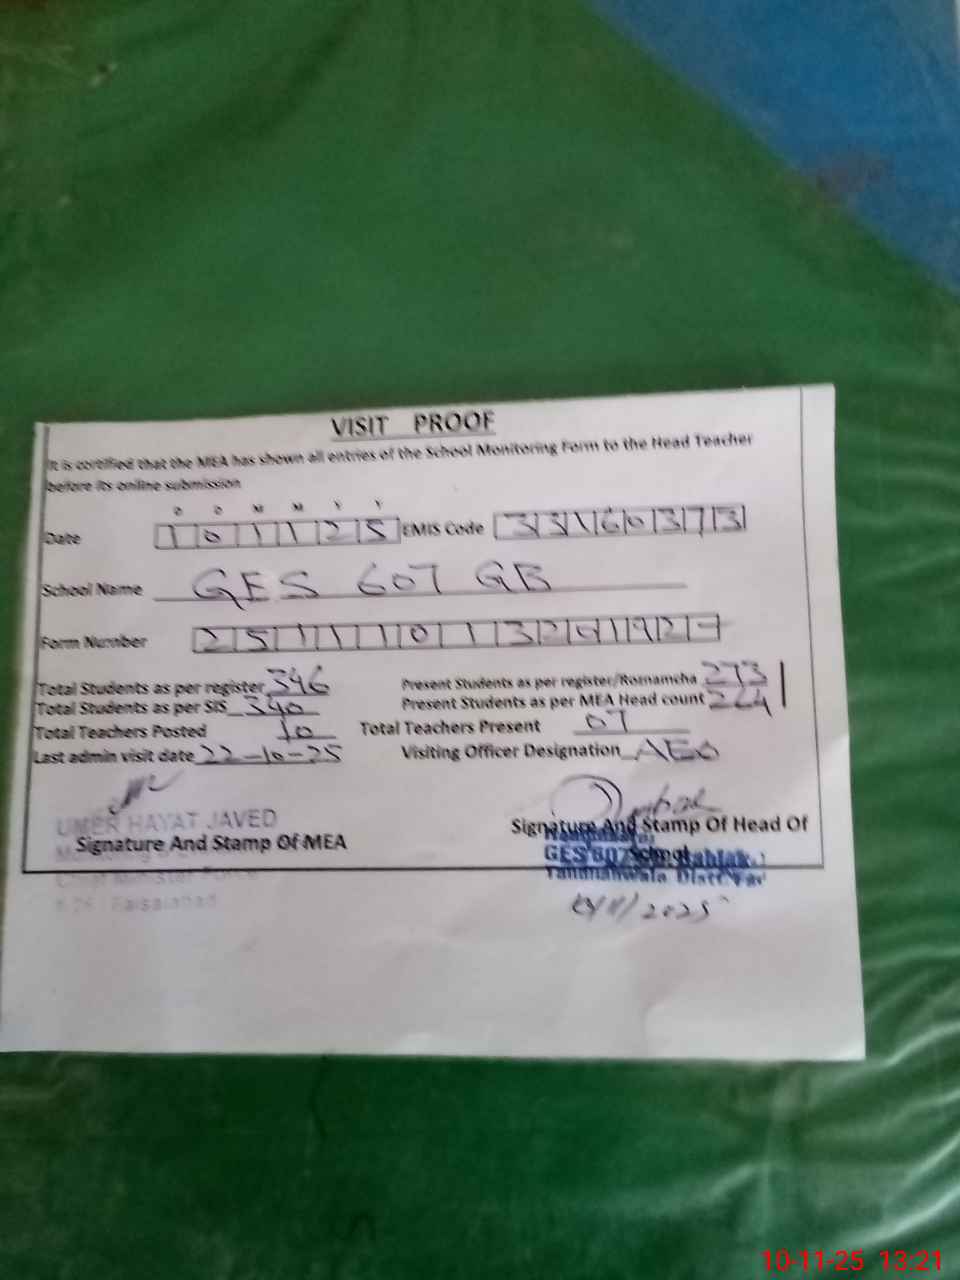 VISIT PROOF
It is certified that the MEA has shown all entries of the School Monitoring Form to the Head Teacher
before its online submission
D D M M Y Y
Date 1 0 1 1 2 5 EMIS Code 3 3 1 6 0 3 7 3
School Name GES 607 GB
Form Number 2 5 1 1 1 0 1 3 2
Total Students as per register 346 Present Students as per register/Roznamcha 273
Total Students as per SIS 340 Present Students as per MEA Head count 264
Total Teachers Posted 10 Total Teachers Present 07
Last admin visit date 22-10-25 Visiting Officer Designation AEO
UMER HAYAT JAVED
Signature And Stamp Of MEA
Signature And Stamp Of Head Of
School
GES 607
Tandlianwala Distt
Faisalabad
/11/2025
10-11-25 13:21